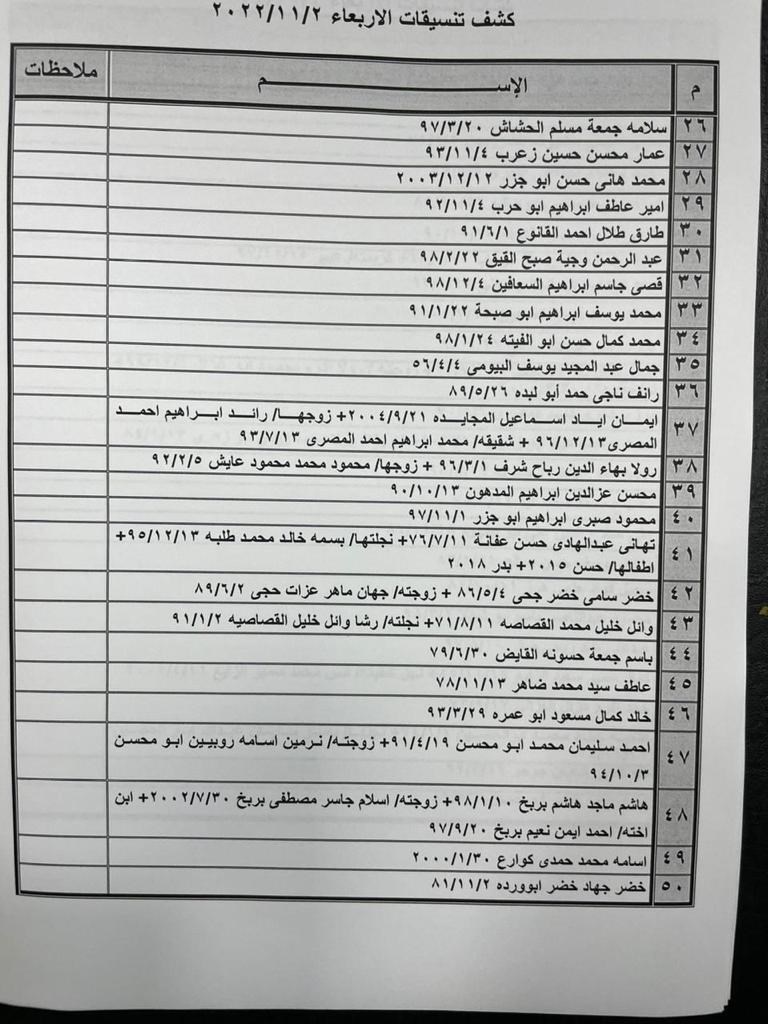 كشف تنسيقات الاربعاء ٢٠٢٢/١١/٢
م الإســـــم ملاحظات
٢٦ سلامه جمعة مسلم الحشاش ٩٧/٣/٢٠
٢٧ عمار محسن حسين زعرب ٩٣/١١/٤
٢٨ محمد هانى حسن ابو جزر ٢٠٠٣/١٢/١٢
٢٩ امير عاطف ابراهيم ابو حرب ٩٢/١١/٤
٣٠ طارق طلال احمد القانوع ٩١/٦/١
٣١ عبد الرحمن وجية صبح القيق ٩٨/٢/٢٢
٣٢ قصى جاسم ابراهيم السعافين ٩٨/١٢/٤
٣٣ محمد يوسف ابراهيم ابو صبحة ٩١/١/٢٢
٣٤ محمد كمال حسن ابو الفيته ٩٨/١/٢٤
٣٥ جمال عبد المجيد يوسف البيومى ٥٦/٤/٤
٣٦ رانف ناجى حمد أبو لبده ٨٩/٥/٢٦
٣٧ ايمــان ايـاد اسـماعيل المجايـده ٢٠٠٤/٩/٢١+ زوجهـا/ رائـد ابـراهيم احمـد
المصرى٩٦/١٢/١٣ + شقيقه/ محمد ابراهيم احمد المصرى ٩٣/٧/١٣
٣٨ رولا بهاء الدين رباح شرف ٩٦/٣/١ + زوجها/ محمود محمد محمود عايش ٩٢/٢/٥
٣٩ محسن عزالدين ابراهيم المدهون ٩٠/١٠/١٣
٤٠ محمود صبرى ابراهيم ابو جزر ٩٧/١١/١
٤١ تهانى عبدالهادى حسن عفانة ٧٦/٧/١١+ نجلتها/ بسمه خالد محمد طلبه ٩٥/١٢/١٣+
اطفالها/ حسن ٢٠١٥+ بدر ٢٠١٨
٤٢ خضر سامى خضر جحى ٨٦/٥/٤ + زوجته/ جهان ماهر عزات حجى ٨٩/٦/٢
٤٣ وائل خليل محمد القصاصه ٧١/٨/١١+ نجلته/ رشا وائل خليل القصاصيه ٩١/١/٢
٤٤ باسم جمعة حسونه القايض ٧٩/٦/٣٠
٤٥ عاطف سيد محمد ضاهر ٧٨/١١/١٣
٤٦ خالد كمال مسعود ابو عمره ٩٣/٣/٢٩
٤٧ احمد سليمان محمد ابو محسن ٩١/٤/١٩+ زوجتـه/ نـرمين اسـامه روبيـين ابـو محسـن
٩٤/١٠/٣
٤٨ هاشم ماجد هاشم بربخ ٩٨/١/١٠+ زوجته/ اسلام جاسر مصطفى بربخ ٢٠٠٢/٧/٣٠+ ابن
اخته/ احمد ايمن نعيم بربخ ٩٧/٩/٢٠
٤٩ اسامه محمد حمدى كوارع ٢٠٠٠/١/٣٠
٥٠ خضر جهاد خضر ابوورده ٨١/١١/٢